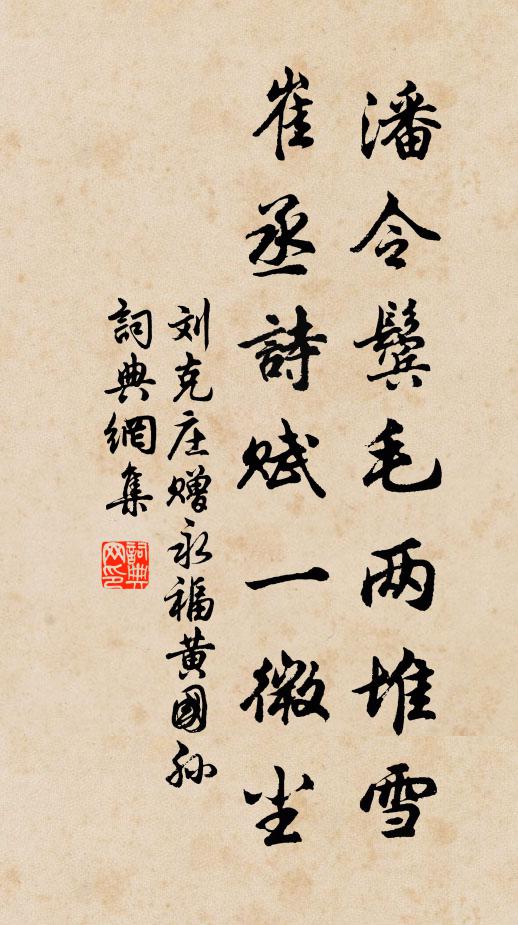 潘令鬓毛两堆雪
崔丞詩赋一微尘
刘克庄赠永福黄國孙
詞典網集
詞典
网印